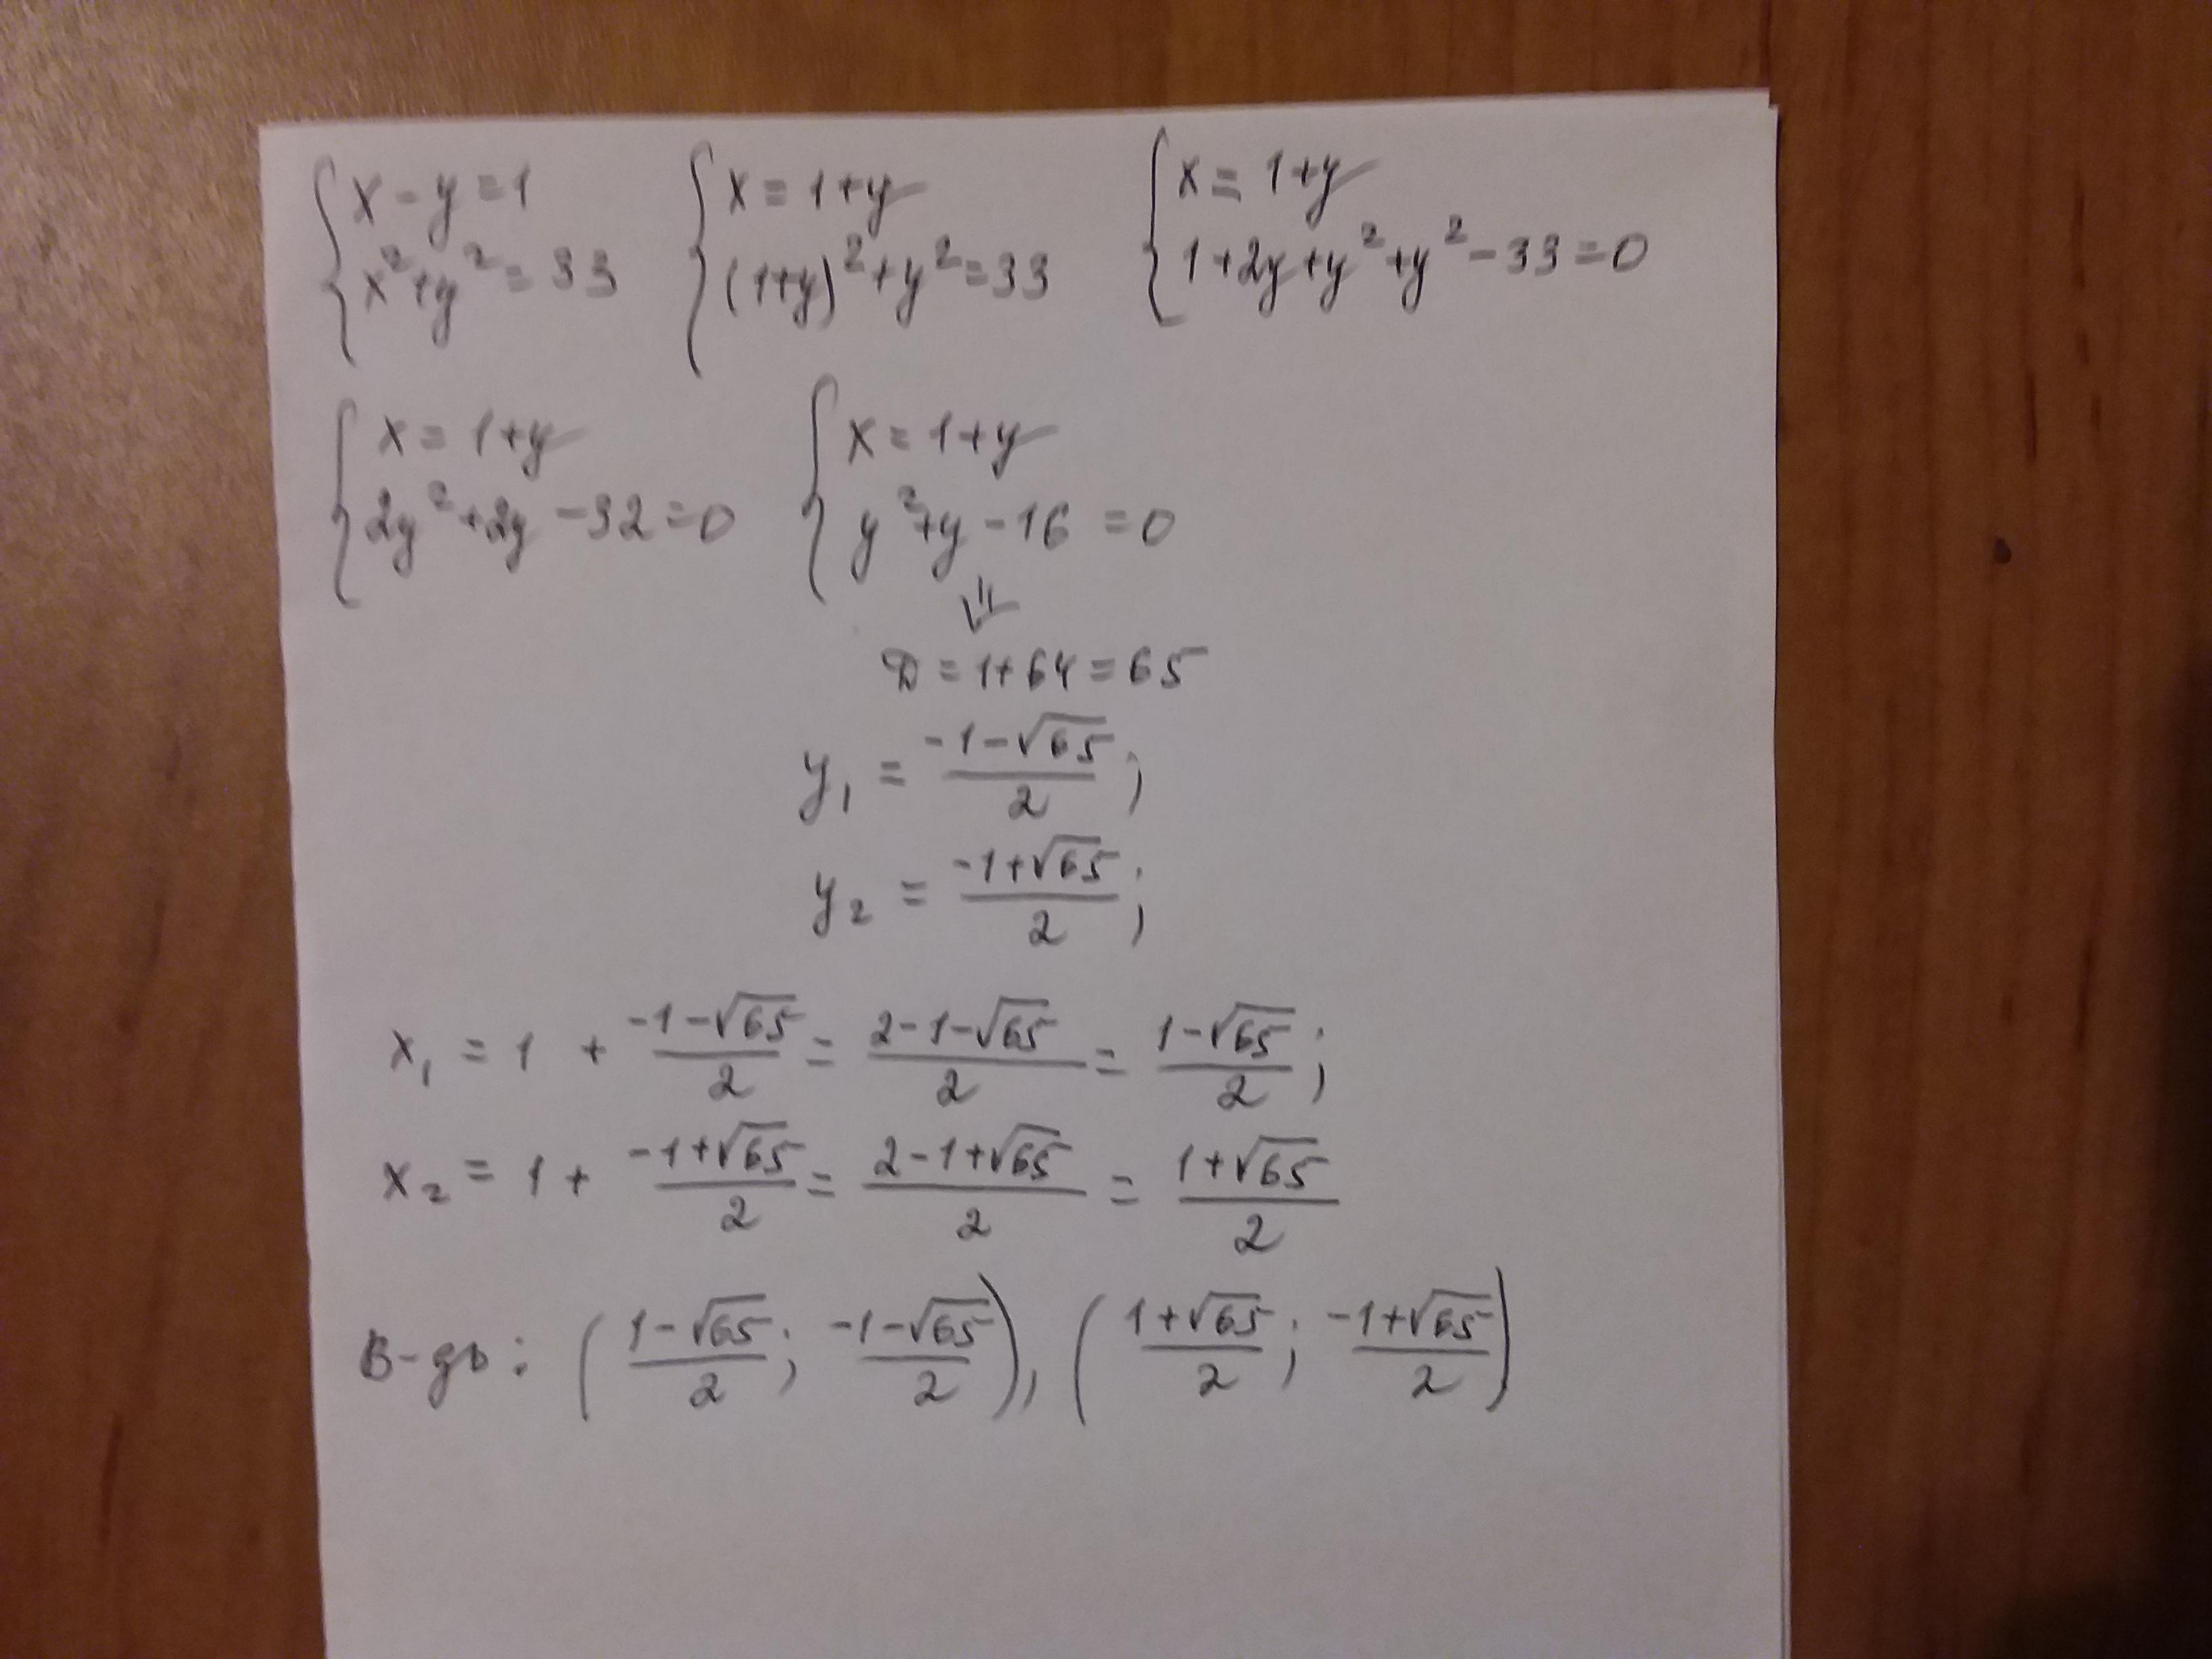 { x - y = 1 { x = 1+y { x = 1+y
x² + y² = 33 (1+y)² + y² = 33 1+2y+y²+y²-33=0
{ x = 1+y { x = 1+y
2y²+2y-32=0 y²+y-16=0
⇓
D = 1+64 = 65
y₁ = (-1-√65)/2 ;
y₂ = (-1+√65)/2 ;
x₁ = 1 + (-1-√65)/2 = (2-1-√65)/2 = (1-√65)/2 ;
x₂ = 1 + (-1+√65)/2 = (2-1+√65)/2 = (1+√65)/2
В-дь: ((1-√65)/2 ; (-1-√65)/2), ((1+√65)/2 ; (-1+√65)/2)